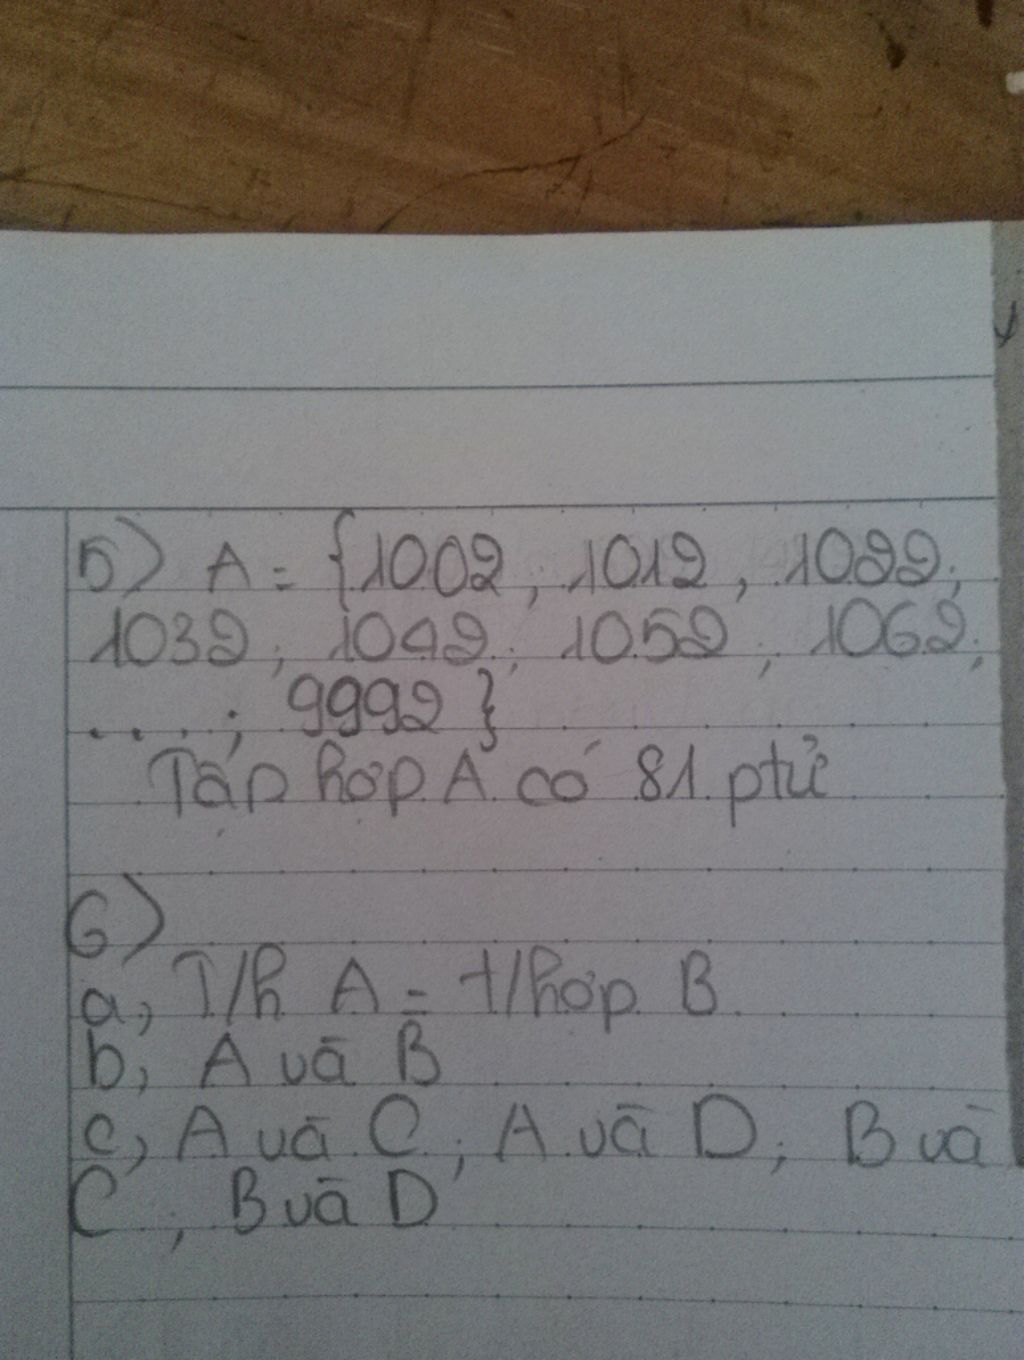 5) A = {1002; 1012, 1022;
1032; 1042; 1052; 1062;
....; 9992}
Tập hợp A có 81 ptử
6)
a, T/h A = t/hợp B.
b, A và B
c, A và C; A và D; B và
C; B và D